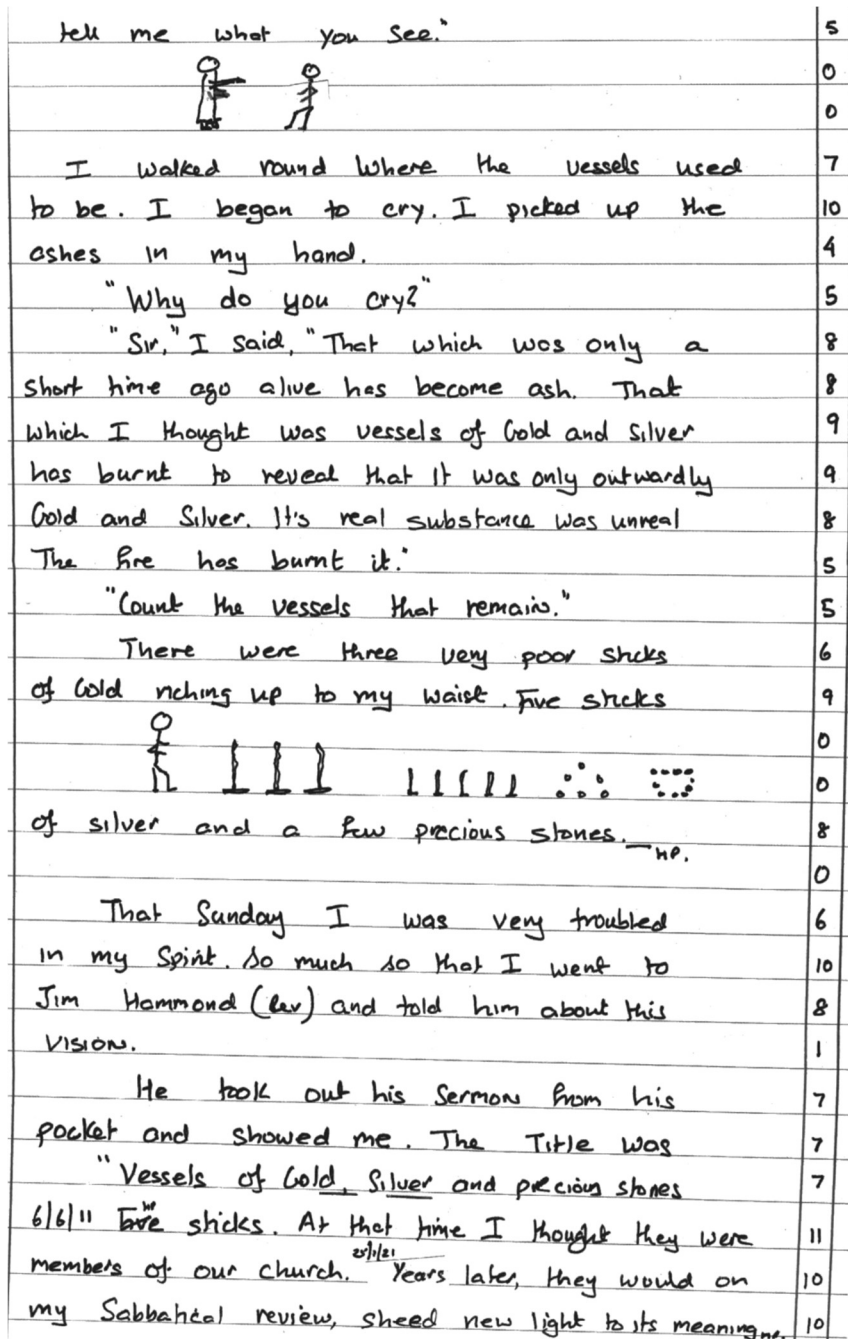 tell me what you see." 5
0
0
I walked round where the vessels used 7
to be. I began to cry. I picked up the 10
ashes in my hand. 4
"Why do you cry?" 5
"Sir," I said, "That which was only a 8
short time ago alive has become ash. That 8
which I thought was vessels of Gold and Silver 9
has burnt to reveal that it was only outwardly 9
Gold and Silver. It's real substance was unreal 8
The fire has burnt it." 5
"Count the vessels that remain." 5
There were three very poor sticks 6
of Gold riching up to my waist. Five sticks 9
0
0
of silver and a few precious stones. HP. 8
0
That Sunday I was very troubled 6
in my Spirit. So much so that I went to 10
Jim Hammond (Rev) and told him about this 8
vision. 1
He took out his Sermon from his 7
pocket and showed me. The Title was 7
"Vessels of Gold, Silver and precious stones 7
6/6/11 HP sticks. At that time I thought they were 11
members of our church. 25/1/21 Years later, they would on 10
my Sabbahtcal review, sheed new light to its meaning HP. 10